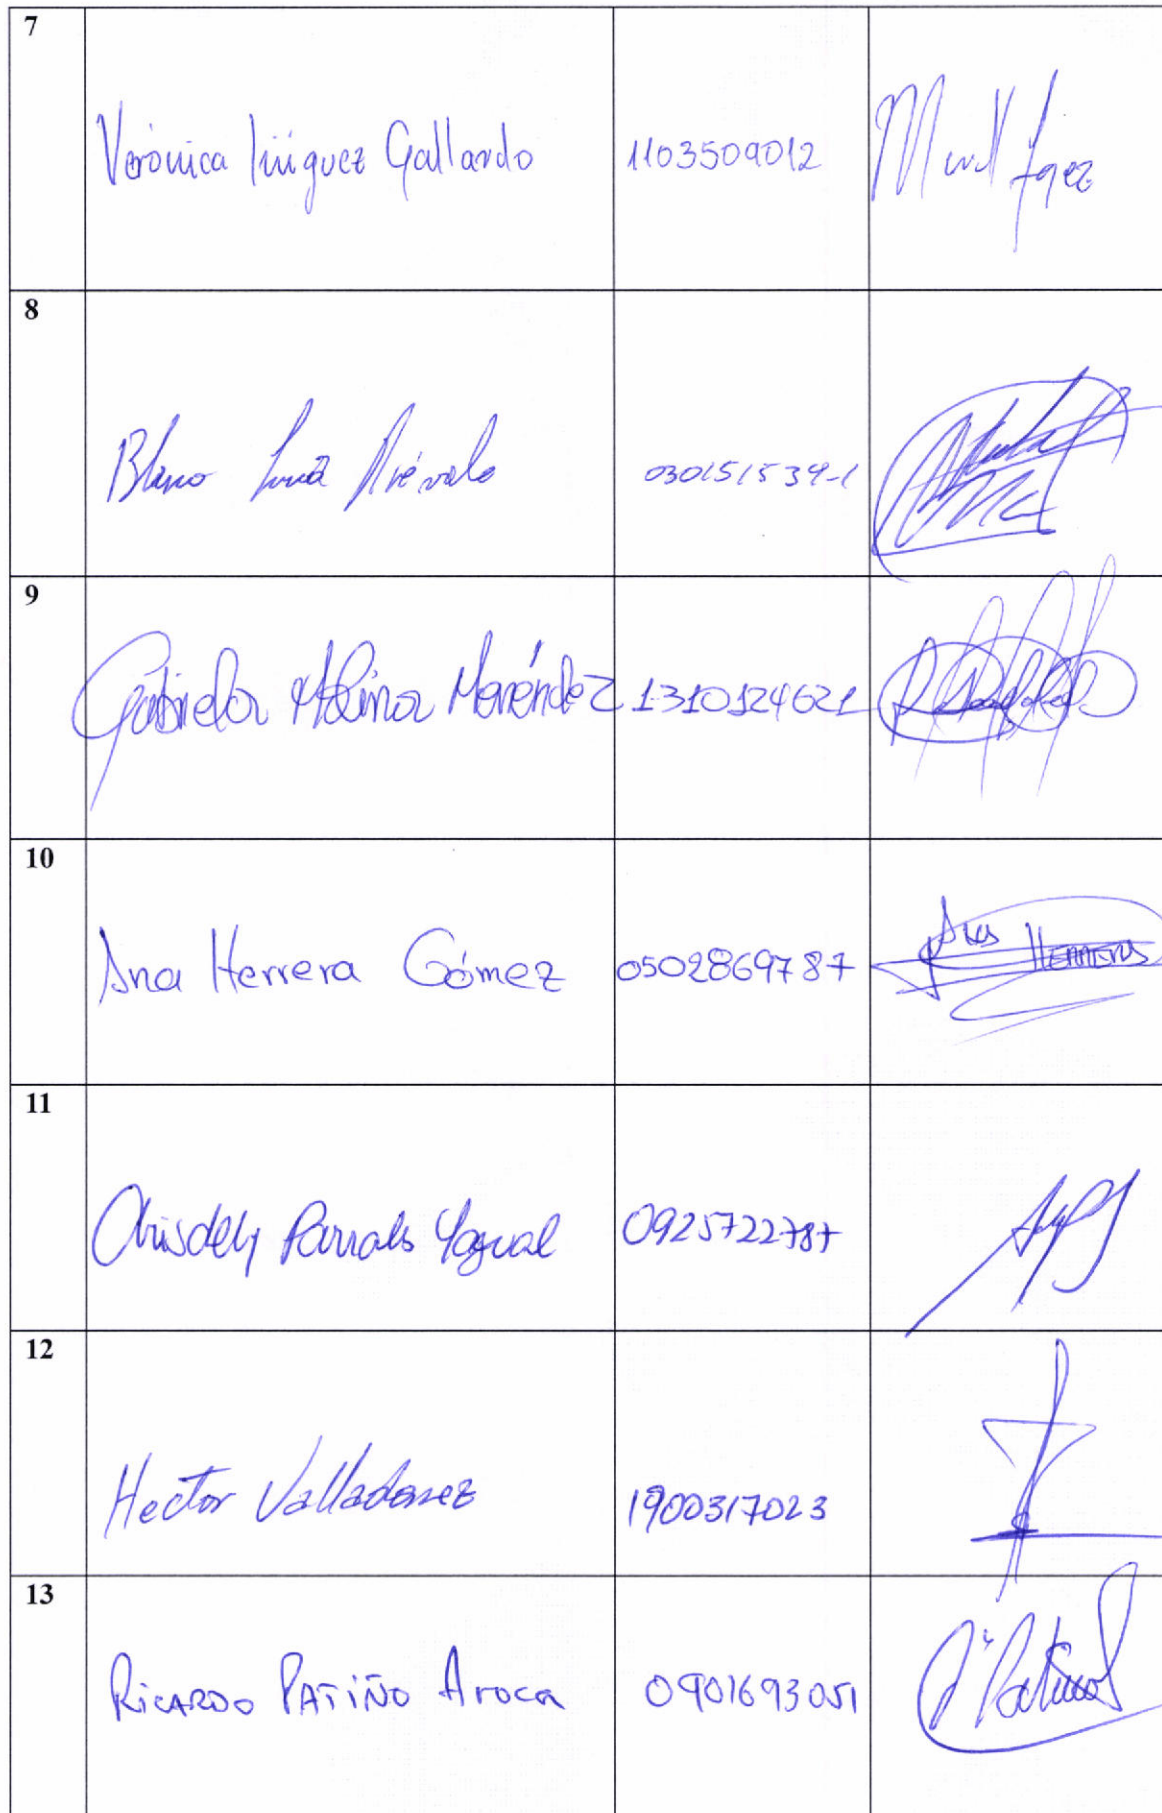 7
Verónica Iñiguez Gallardo 1103509012
8
Blanca Arévalo 030151539-1
9
Gabriela Molina Menéndez 1310124621
10
Ana Herrera Gómez 0502869787 Ana Herrera
11
Chrisdely Parrales Yagual 0925722787
12
Hector Valladarez 1900317023
13
RICARDO PATIÑO Aroca 0901693051